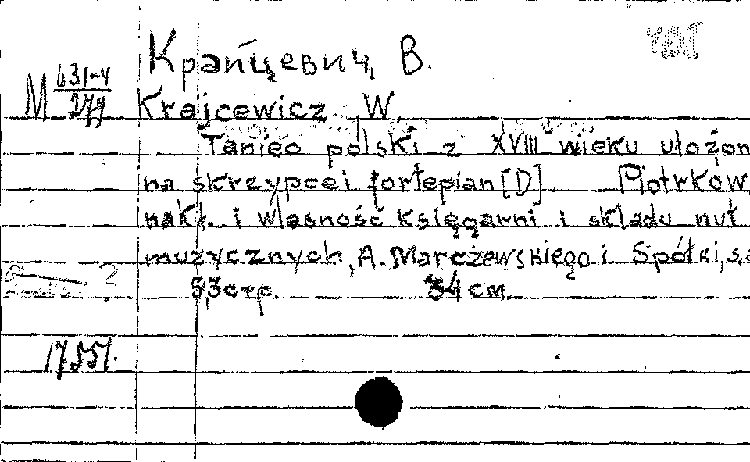 Крайцевич, В.
М 631-v/279
Krajcewicz W.
Taniec polski z XVIII wieku ułożon
na skrzypce i fortepian [D] Piotrków,
nakł. i własność księgarni i składu nut
muzycznych, A. Marczewskiego i Spółki, s.a
5,3 стр. 34 см.
?
17551.